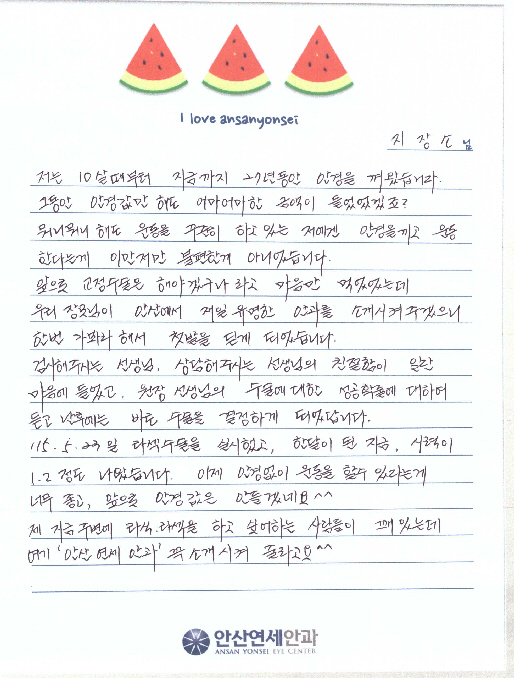 I love ansanyonsei
지 장 소 님
저는 10살때부터 지금까지 27년동안 안경을 껴왔습니다.
그동안 안경값만 해도 어마어마한 금액이 들었었겠죠?
뭐니뭐니 해도 운동을 꾸준히 하고 있는 저에겐 안경을끼고 운동
한다는게 이만저만 불편한게 아니었습니다.
앞으로 교정수술은 해야겠구나 라고 마음만 먹었었는데
우리 장모님이 안산에서 제일 유명한 안과를 소개시켜주겠으니
한번 가봐라 해서 첫발을 딛게 되었습니다.
검사해주시는 선생님, 상담해주시는 선생님의 친절함이 일단
마음에 들었고, 원장 선생님의 수술에 대한 성공확률에 대하여
듣고 난후에는 바로 수술을 결정하게 되었답니다.
'15. 5. 23일 라섹수술을 실시했고, 한달이 된 지금, 시력이
1.2 정도 나왔습니다. 이제 안경없이 운동을 할수 있다는게
너무 좋고, 앞으로 안경값은 안들겠네요^^
제 지금 주변에 라식.라섹을 하고 싶어하는 사람들이 꽤 있는데
여기 '안산 연세 안과' 꼭 소개시켜 줄라고요^^
안산연세안과
ANSAN YONSEI EYE CENTER